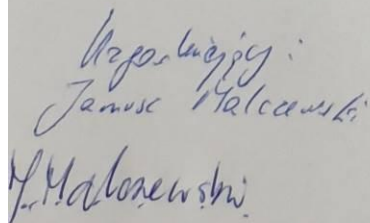 Uzgadniający:
Janusz Malczewski
J. Malczewski